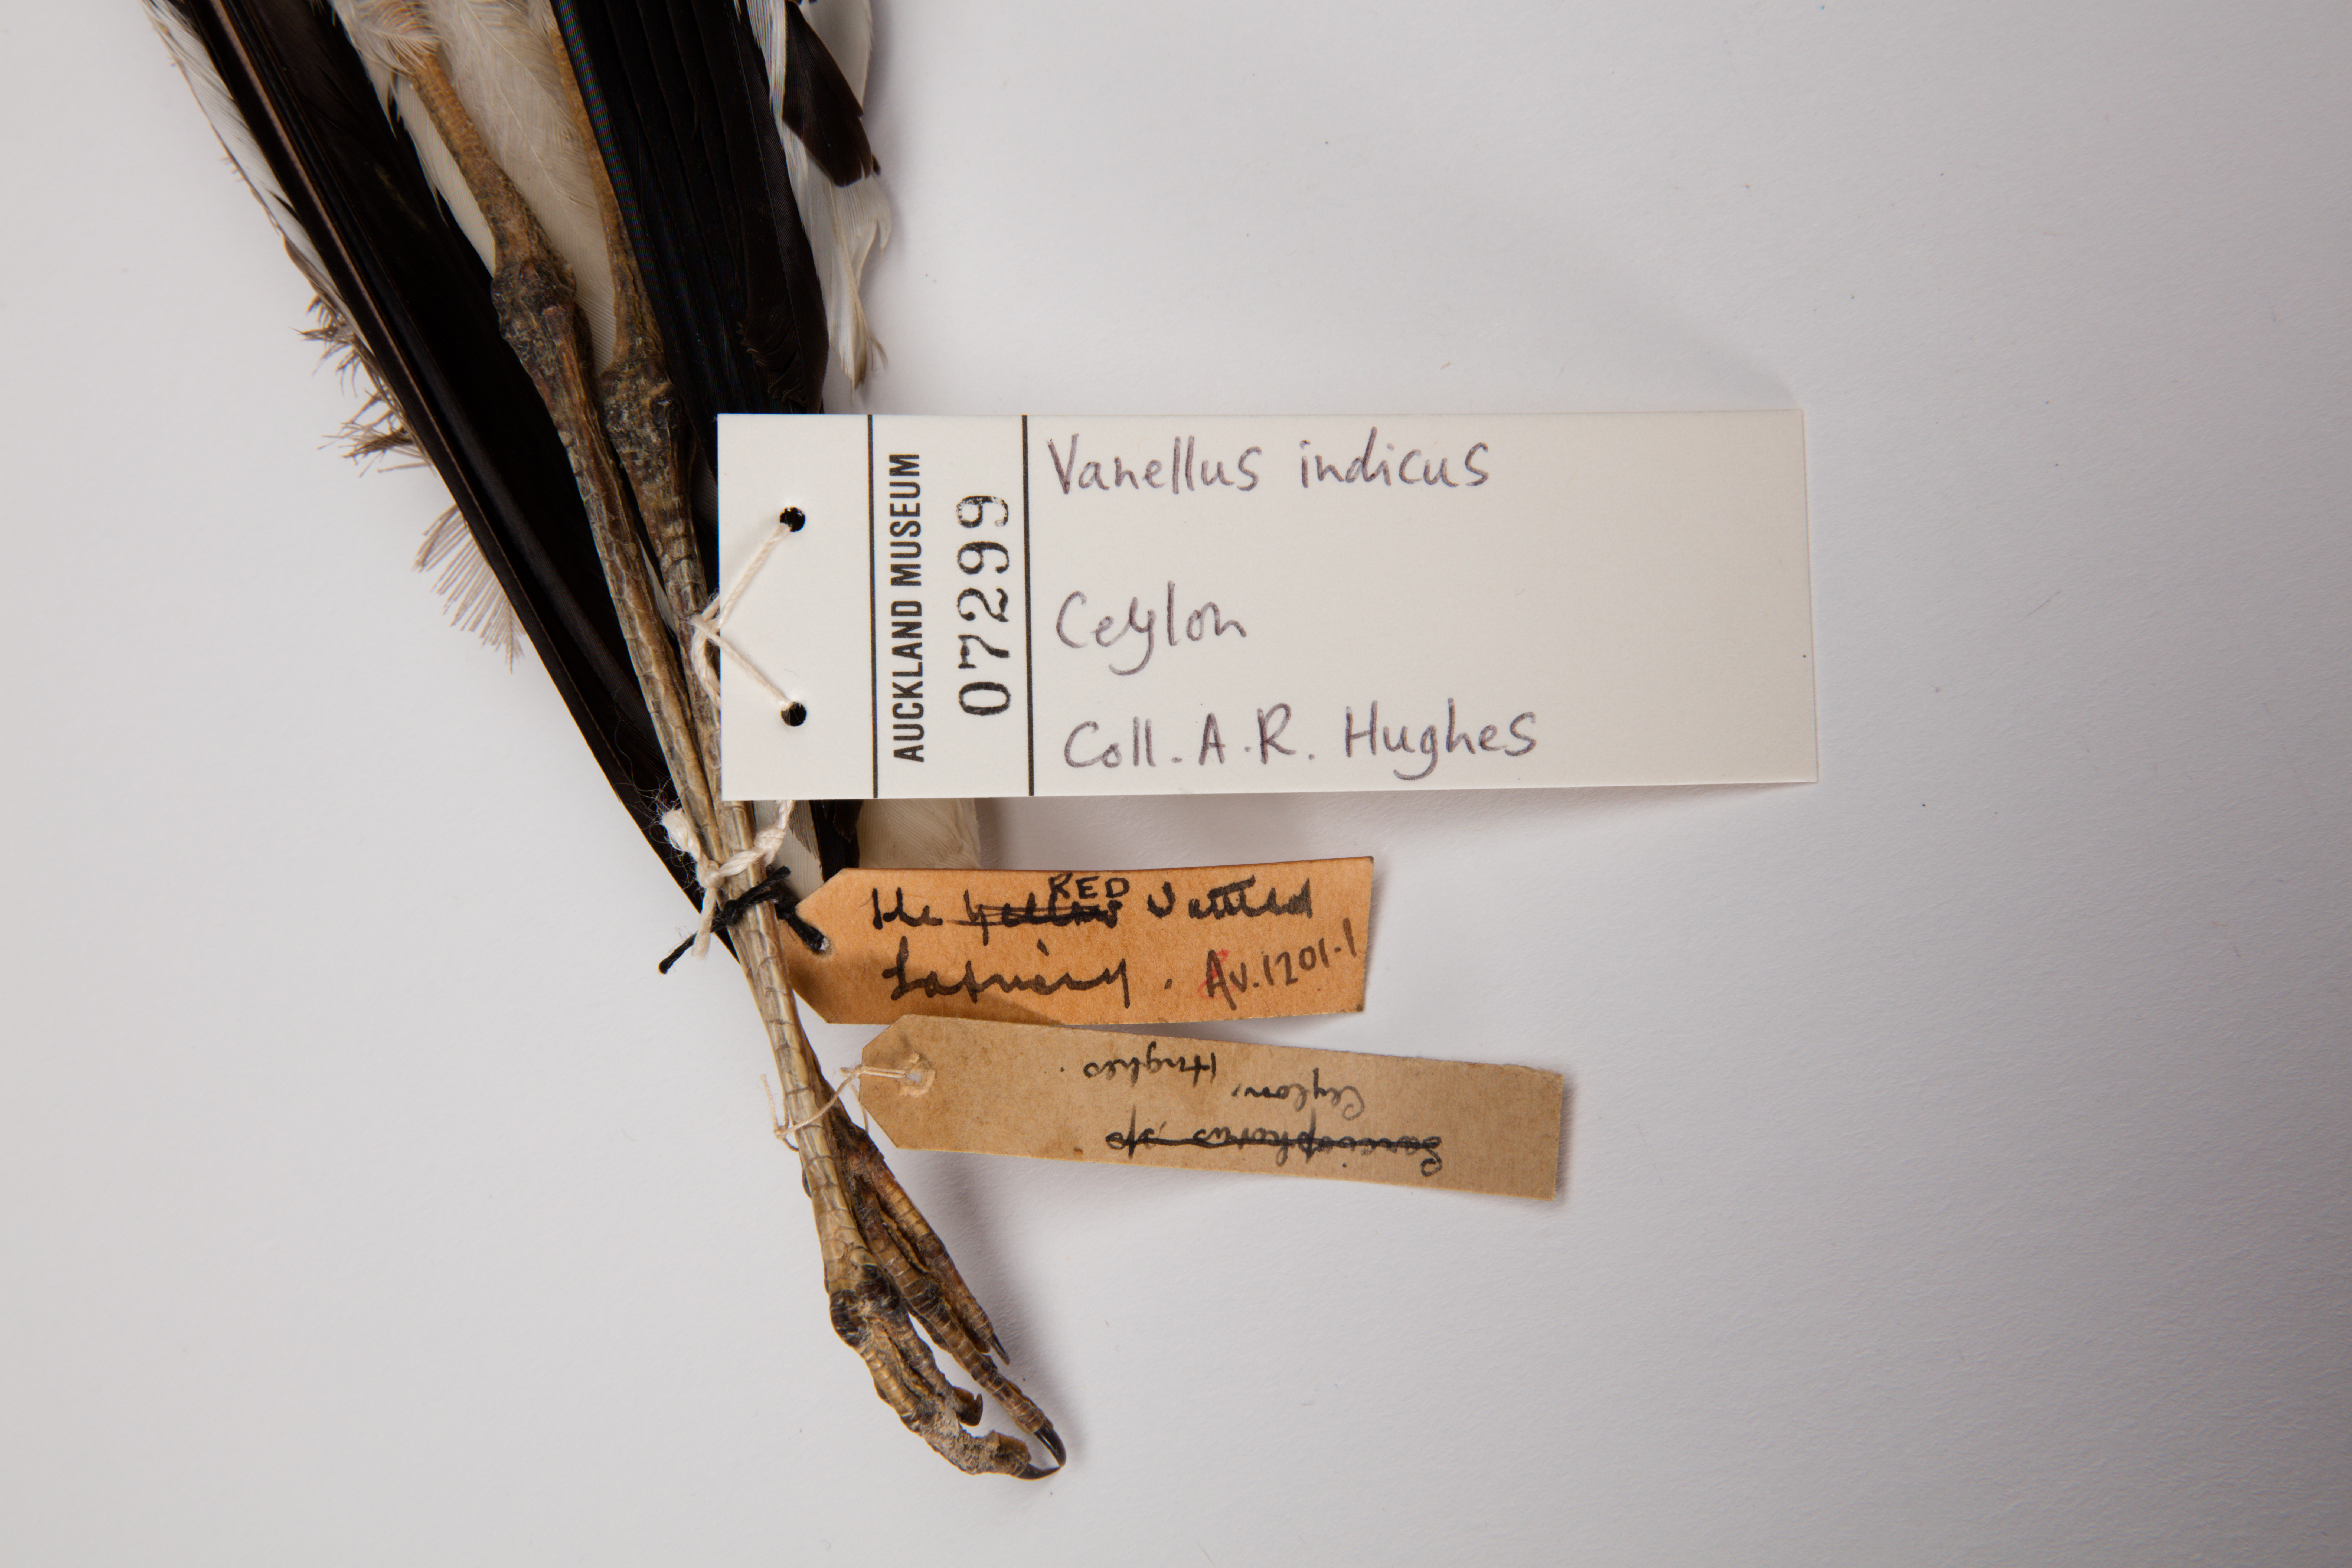 AUCKLAND MUSEUM
07299
Vanellus indicus
Ceylon
Coll. A.R. Hughes
RED
the yellow Wattled
Lapwing. Av.1201.1
Sarciophorus sp
Ceylon,
Hughes.